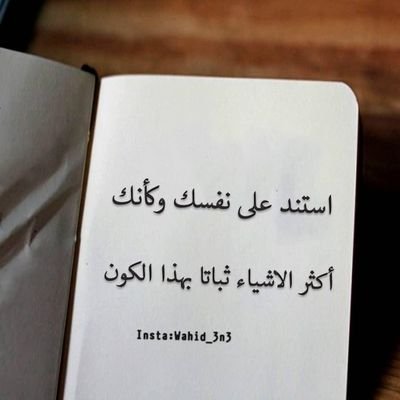 استند على نفسك وكأنك
أكثر الاشياء ثباتا بهذا الكون
Insta:Wahid_3n3